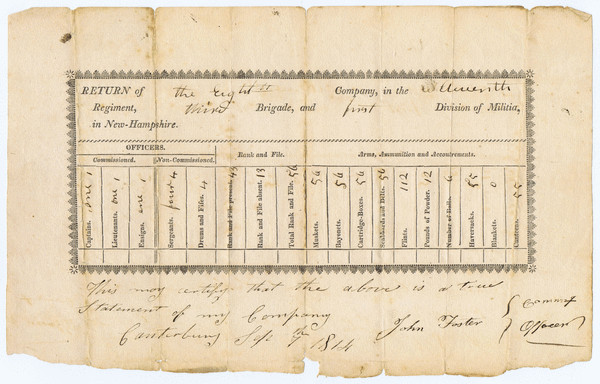 RETURN of the eight Company, in the Eleventh
Regiment, third Brigade, and first Division of Militia,
in New-Hampshire.
OFFICERS.
Commissioned. Non-Commissioned. Rank and File. Arms, Ammunition and Accoutrements.
Captains. one 1
Lieutenants. one 1
Ensigns. one 1
Sergeants. four 4
Drums and Fifes. 4
Rank and File present. 43
Rank and File absent. 13
Total Rank and File. 56
Muskets. 56
Bayonets. 56
Cartridge-Boxes. 56
Scabbards and Belts. 56
Flints. 112
Pounds of Powder. 12
Number of Balls.
Haversacks. 55
Blankets. 0
Canteens. 55
This may certify that the above is a true
Statement of my Company
Canterbury Sep 9th 1814 John Foster { Commt
Officer